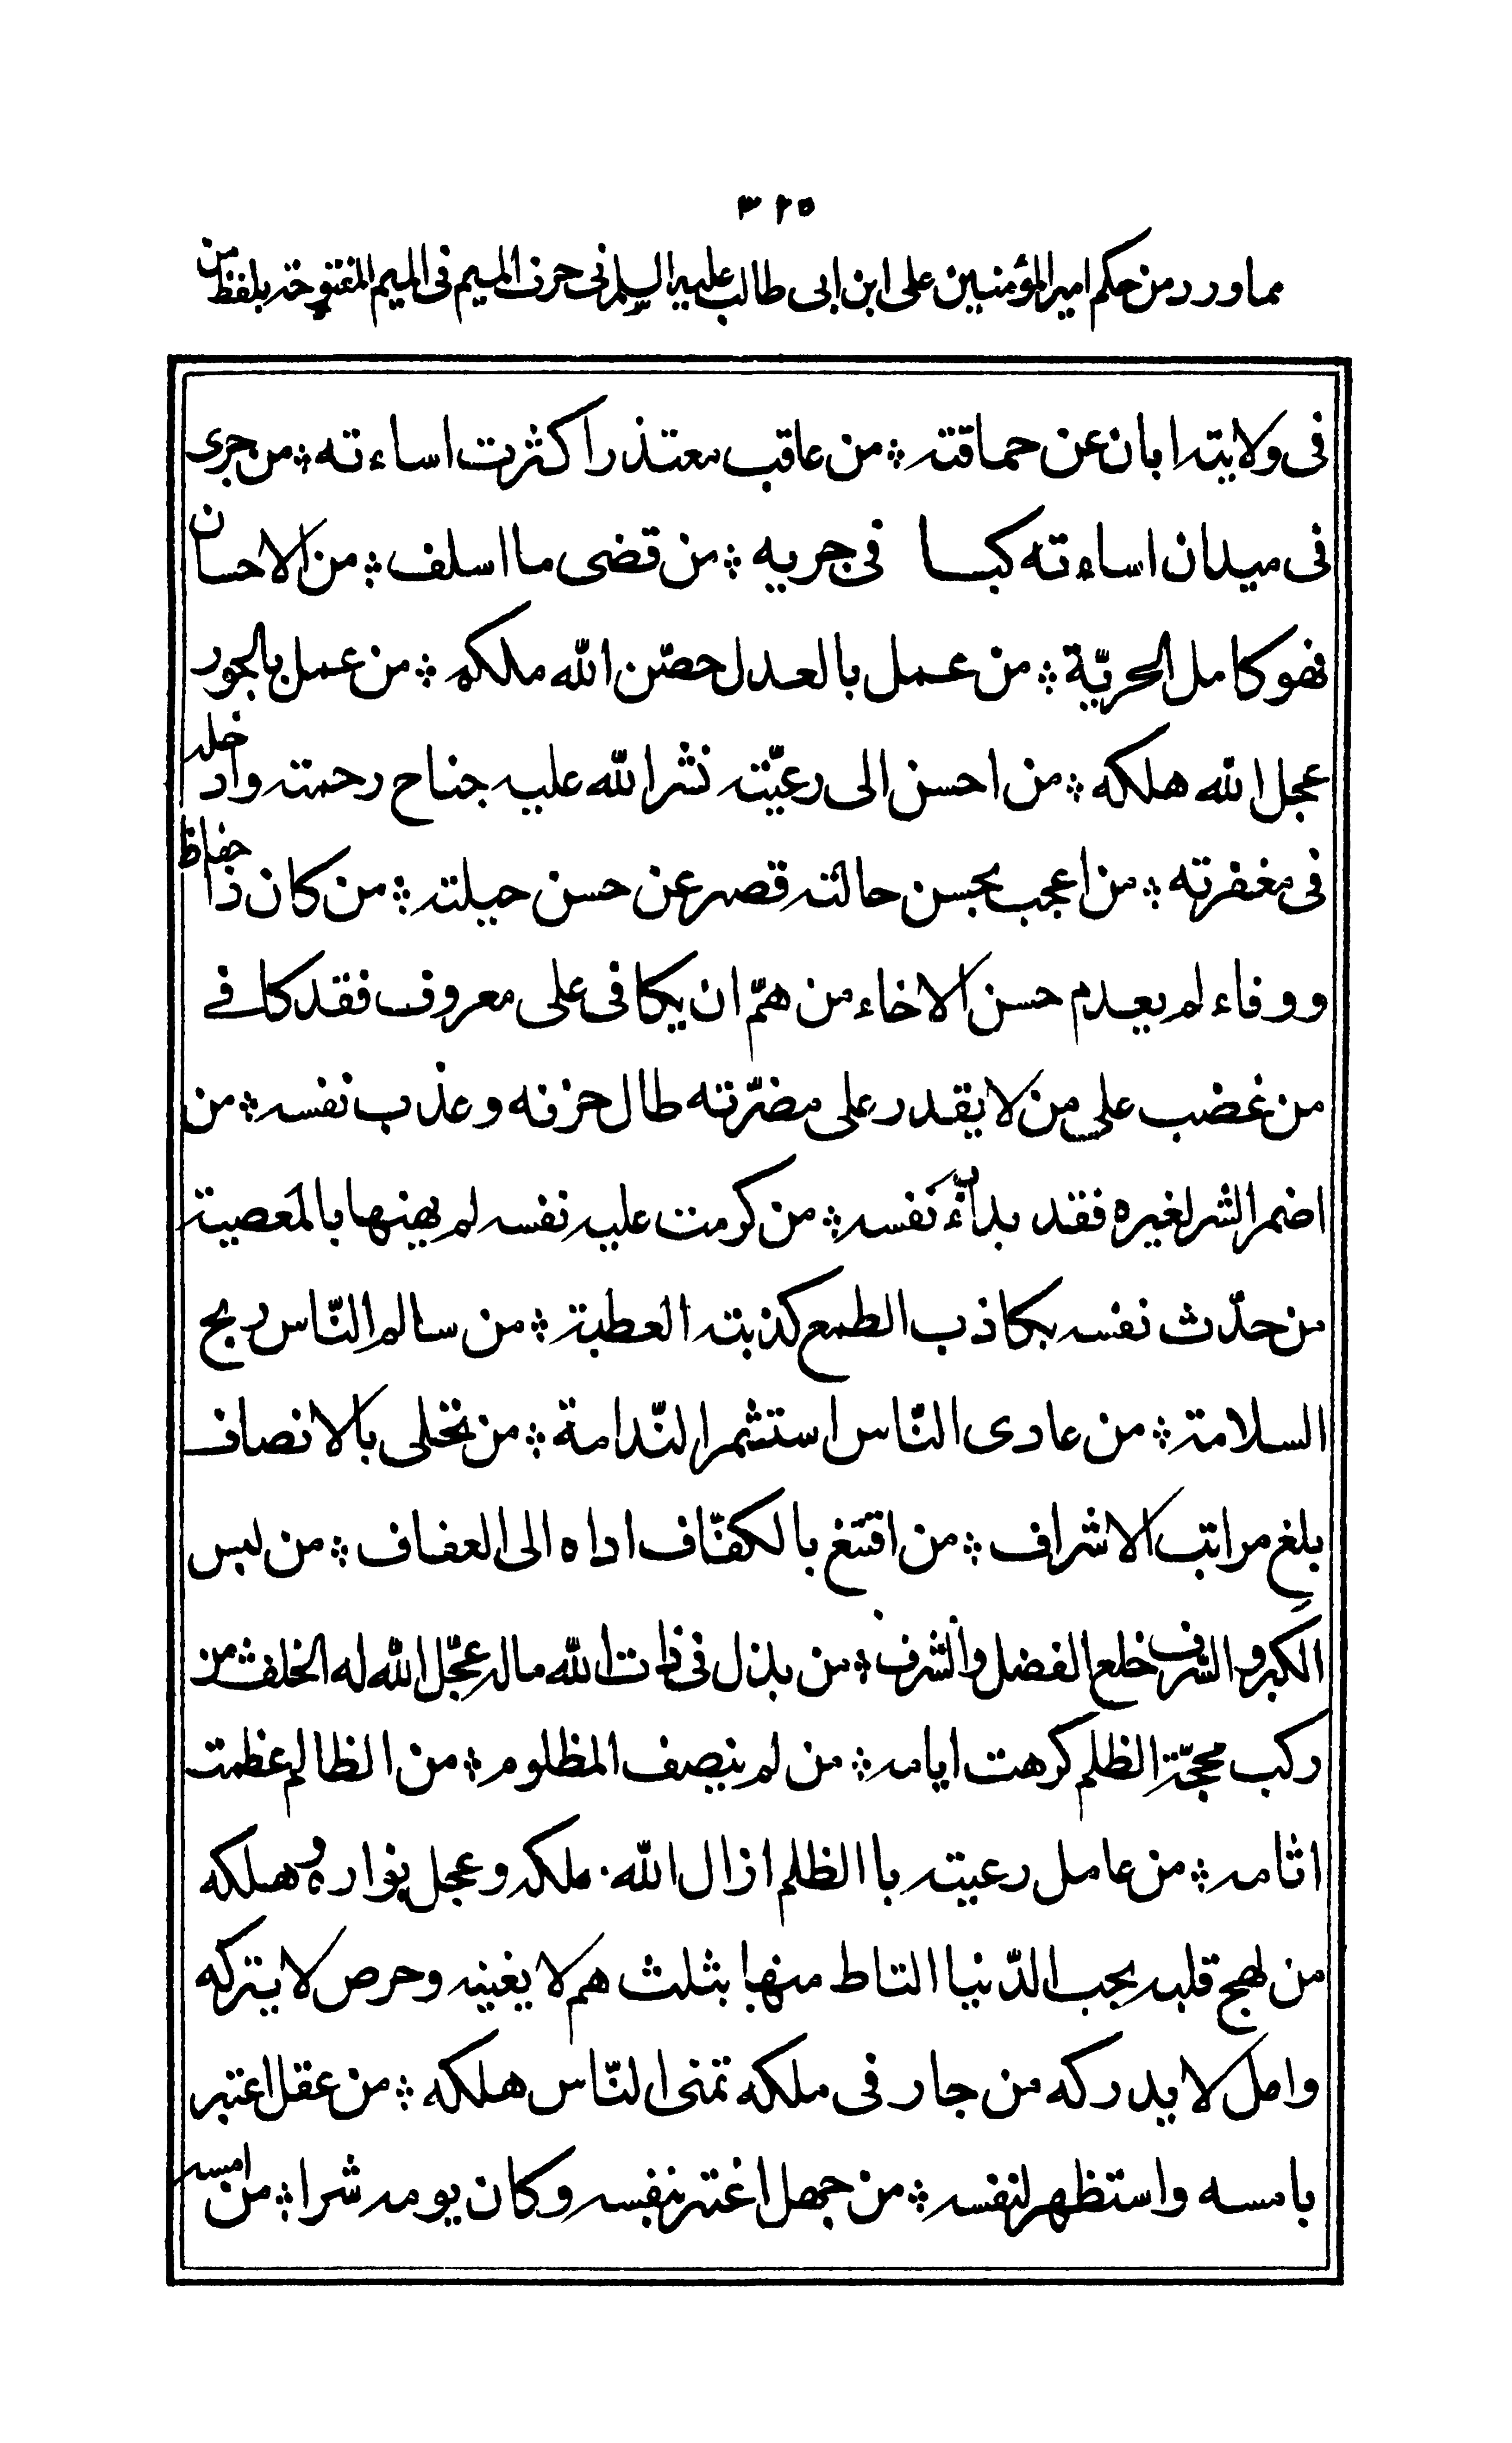 ٣٢٥
مما ورد من حكم امير المؤمنين على ابن ابى طالب عليه السلم فى حرف الميم فى الميم المفتوحة بلفظ من
فى ولايته ابان عن حماقته ؞ من عاقب معتذرا كثرت اساءته ؞ من جرى
فى ميدان اساءته كبا فى جريه ؞ من قضى ما اسلف ؞ من الاحسان
فهو كامل الحريّة ؞ من عمل بالعدل حصّن الله ملكه ؞ من عمل بالجور
عجل الله هلكه ؞ من احسن الى رعيّته نشر الله عليه جناح رحمته وادخله
فى مغفرته ؞ من اعجب بحسن حالته قصر عن حسن حيلته ؞ من كان ذا حفاظ
ووفاء لم يعدم حسن الاخاء من همّ ان يكافى على معروف فقد كافى
من غضب على من لا يقدر على مضرّته طال حزنه وعذب نفسه ؞ من
اضمر الشر لغيره فقد بدأ به نفسه ؞ من كرمت عليه نفسه لم يهنها بالمعصية
من حدّث نفسه بكاذب الطمع كذبته العطية ؞ من سالم النّاس ربح
السلامة ؞ من عادى النّاس استثمر النّدامة ؞ من تحلى بالانصاف
بلغ مراتب الاشراف ؞ من اقتنع بالكفّاف اداه الى العفاف ؞ من لبس
الكبر والسرف خلع الفضل والشرف ؞ من بذل فى ذات الله ماله عجّل الله له الخلف ؞ من
ركب محجّة الظلم كرهت ايامه ؞ من لم ينصف المظلوم ؞ من الظالم عظمت
اثامه ؞ من عامل رعيته باالظلم ازال الله ملكه وعجل بواره و هلكه
من لهج قلبه بحب الدّنيا التاط منها بثلث هم لا يغبنه وحرص لا يتركه
وامل لا يدركه من جار فى ملكه تمنى النّاس هلكه ؞ من عقل اعتبر
بامسه واستظهر لنفسه ؞ من جهل اغتر بنفسه وكان يومه شرا ؞ من امسه